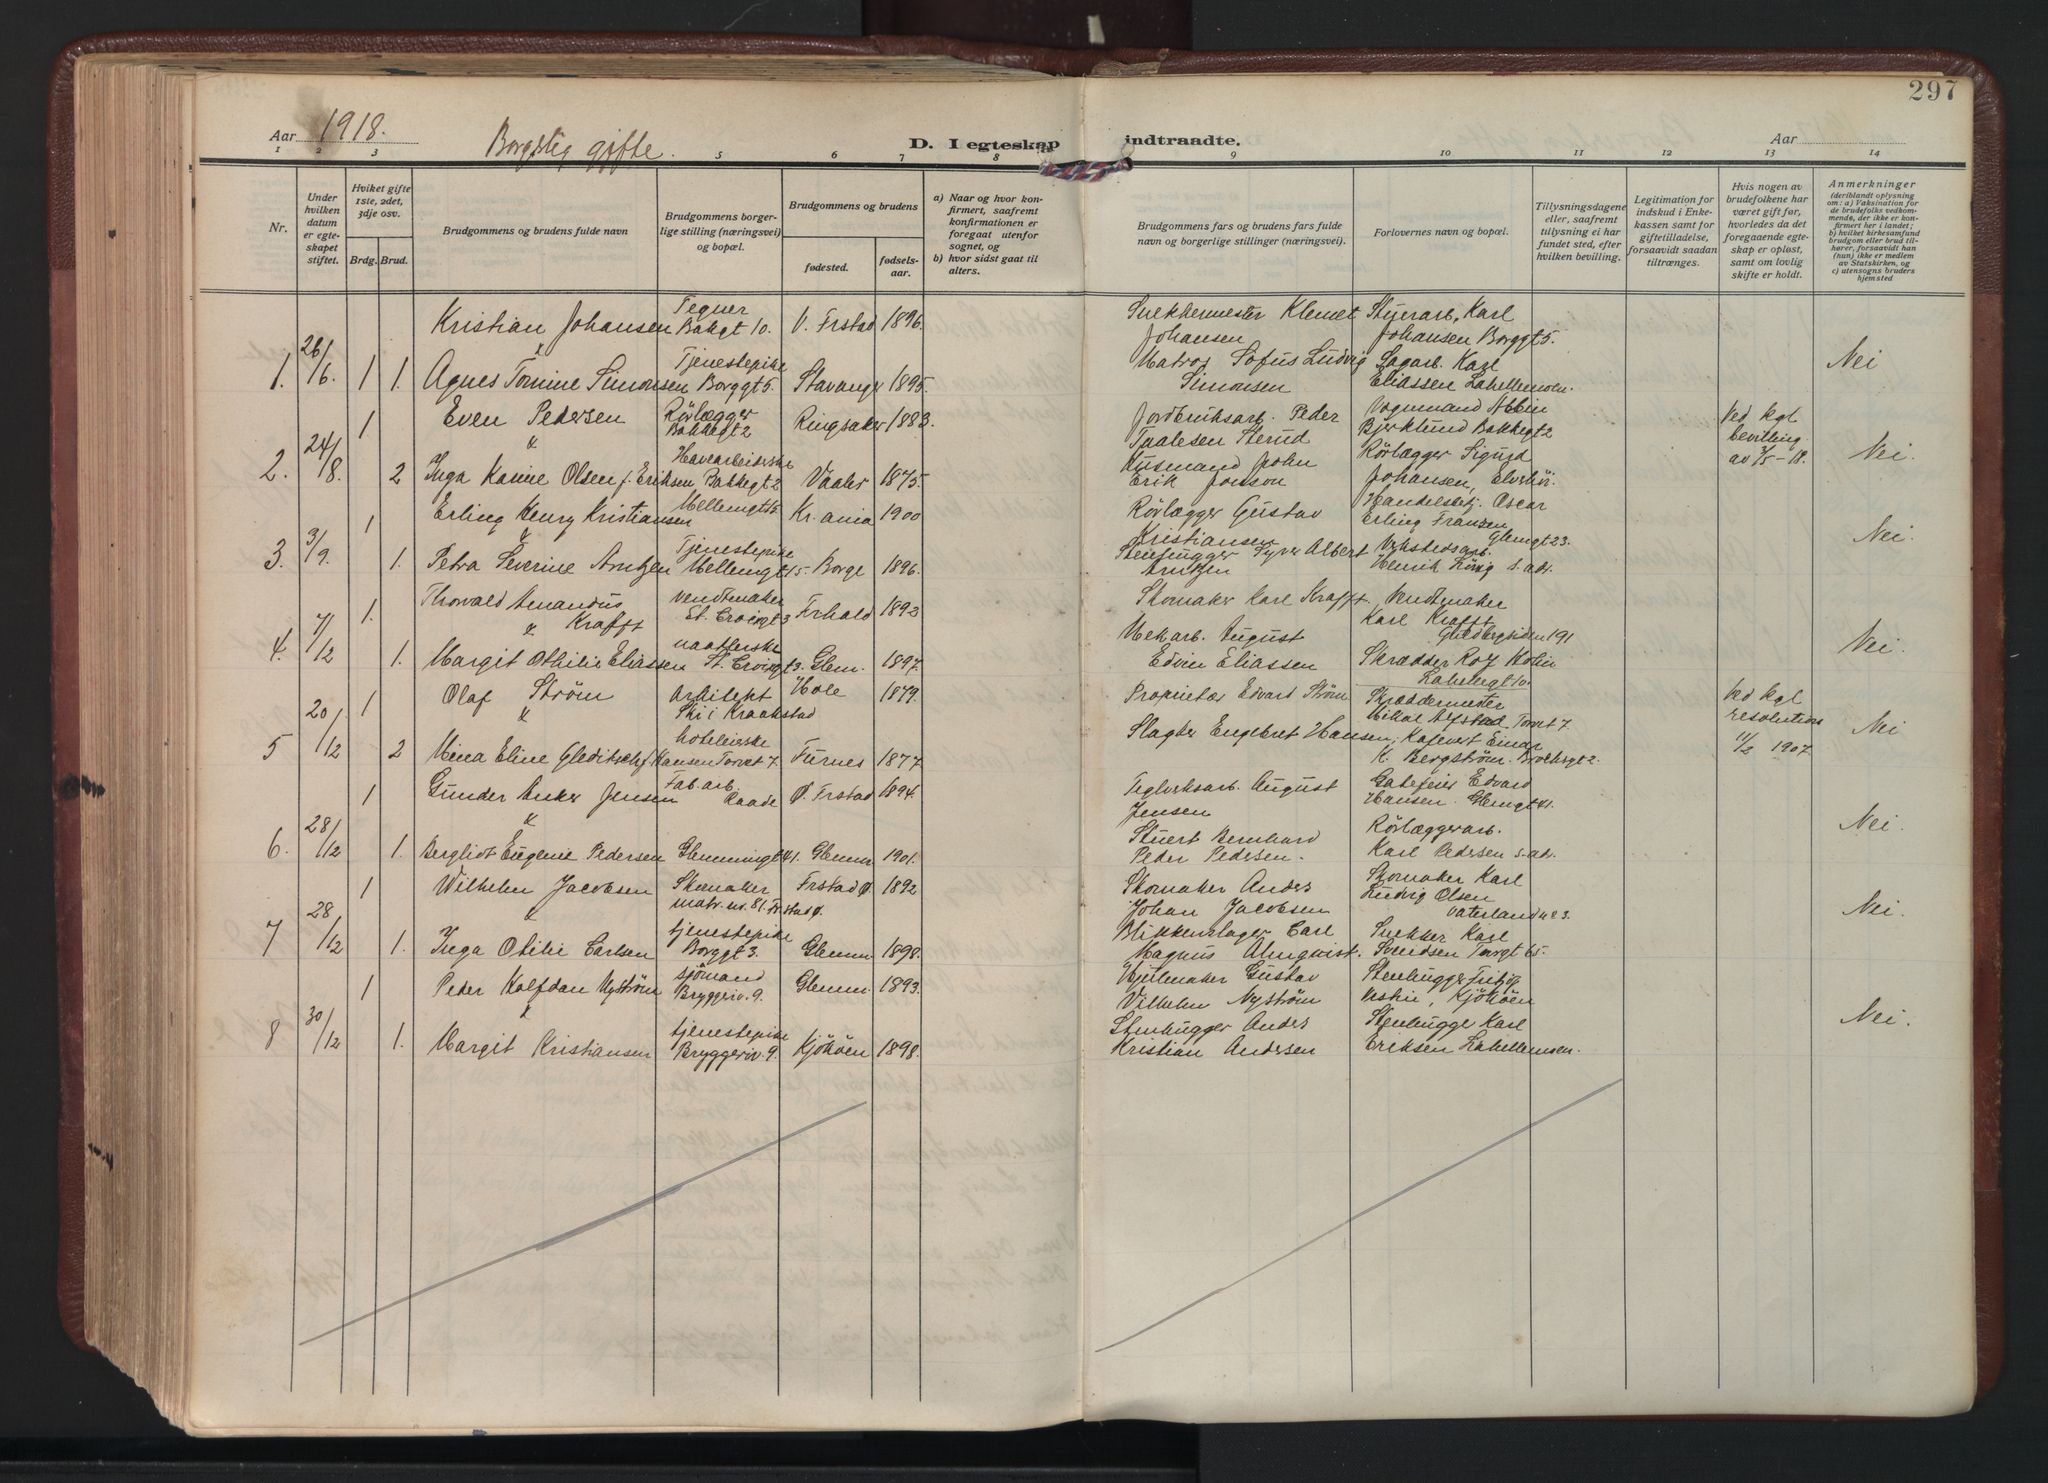 297
Aar 1918.
Borgslig gifte.
D. I egteskap indtraadte.
Aar
1 2 3 5 6 7 8 9 10 11 12 13 14
Nr.
Under hvilken datum er egteskapet stiftet.
Hviket gifte 1ste, 2det, 3dje osv.
Brdg. Brud.
Brudgommens og brudens fulde navn
Brudgommens borgerlige stilling (næringsvei) og bopæl.
Brudgommens og brudens
fødested.
fødselsaar.
a) Naar og hvor konfirmert, saafremt konfirmationen er foregaat utenfor sognet, og
b) hvor sidst gaat til alters.
Brudgommens fars og brudens fars fulde navn og borgerlige stillinger (næringsvei).
Forlovernes navn og bopæl.
Tillysningsdagene eller, saafremt tilysning ei har fundet sted, efter hvilken bevilling.
Legitimation for indskud i Enkekassen samt for giftetilladelse, forsaavidt saadan tiltrænges.
Hvis nogen av brudefolkene har været gift før, hvorledes da det foregaaende egteskap er opløst, samt om lovlig skifte er holdt.
Anmerkninger
(deriblandt oplysning om: a) Vaksination for de brudefolks vedkommende, der ikke er konfirmert her i landet; b) hvilket kirkesamfund brudgom eller brud tilhører, forsaavidt han (hun) ikke er medlem av Statskirken, og c) utensogns bruders hjemsted
Kristian Johansen Tegner Bakgt 10. V. Frstad 1896. Snekkermester Klemet Johansen Styrerarb. Karl Johansen Borggt 5.
1. 26/6. 1 1. Agnes Tomine Simonsen Tjenestepike Borggt 5. Stavanger 1895. Matros Sofus Ludvig Simonsen Sagarb. Karl Eliassen Lahellemoen. Nei
1 Even Pedersen Rörlægger Bakkegt 2 Ringsaker 1883. Jordbruksarb. Peder Paalesen Sterud Vognmand Albin Bjerklund Bakkegt 2 Ved kgl bevilling av 3/5-18.
2. 24/8. 2 Inga Karine Olsen f. Eriksen Havearbeiderske Bakkegt 2 Vaaler 1875. Husmand John Erik Jonson Rörlægger Sigurd Johansen, Elvehöi. Nei.
1 Erling Henry Kristiansen Mellemgt 15 Kr.ania 1900 Rörlægger Gustav Kristiansen Handelsbtj. Oscar Erling Fransen Glemgt 23.
3. 3/9. 1. Petra Severine Arntzen Tjenestepike Mellemgt 15. Borge 1896. Stenhugger Syver Albert Arntzen Verkstedsarb. Henrik s. ads. Nei.
1. Thorvald Amandus Krafft Vendtmaker St. Croixgt 3 Frhald 1892 Skomaker Karl Krafft. Vendtmaker Karl Krafft Guldbergsiden 191
4. 7/12 1. Margit Othilie Eliassen St. Croixgt 3. Glem. 1897. Mek arb. August Edvin Eliassen Skrædder Rolf Kolin Nei.
1 Olaf Ström Arkitekt Ski i Kraakstad Hole 1879. Proprietær Edvard Ström Skræddermester Mikal Torvet 7. Ved kgl resolution 11/2 1907.
5 20/12 2 Mina Eline Gleditsch f. Hansen Hoteleierske Torvet 7 Furnes 1877 Slagter Engebret Hansen, Kafevert Einar K. Bergström. Brochsgt 2. Nei
1 Gunder Anker Jensen Fab. arb. Raade Ø. Frstad 1894. Teglverksarb. August Jensen Gatefeier Edvard Hansen Glemgt 41.
6. 28/12 1. Bergliot Eugenie Pedersen Glemmingt 41. Glemm 1901. Stuert Bernhard Peder Pedersen. Rörlæggerarb. Karl Pedersen s. ads. Nei.
1 Wilhelm Jacobsen Skomaker matr. nr. 81. Frstad Ø. Frstad Ø 1892 Skomaker Anders Johan Jacobsen Skomaker Karl Ludvig Olsen Vaterland 423.
7 28/12 1. Inga Otilie Carlsen tjenestepike Borggt 3. Glemm. 1898. Blikkenslager Carl Magnus Almqvist. Snekker Karl Svendsen Torvgt 65. Nei.
1 Peder Halfdan Nyström sjömand Bryggeriv. 9. Glemm. 1893. Hjulmaker Gustav Vilhelm Nyström Stenhugger Fritjof Kjököen
8 30/12 1. Margit Kristiansen tjenestepike Bryggeriv. 9. Kjököen 1898. Stenhugger Anders Kristian Andersen Stenhugger Karl Eriksen Lahellemoen. Nei.